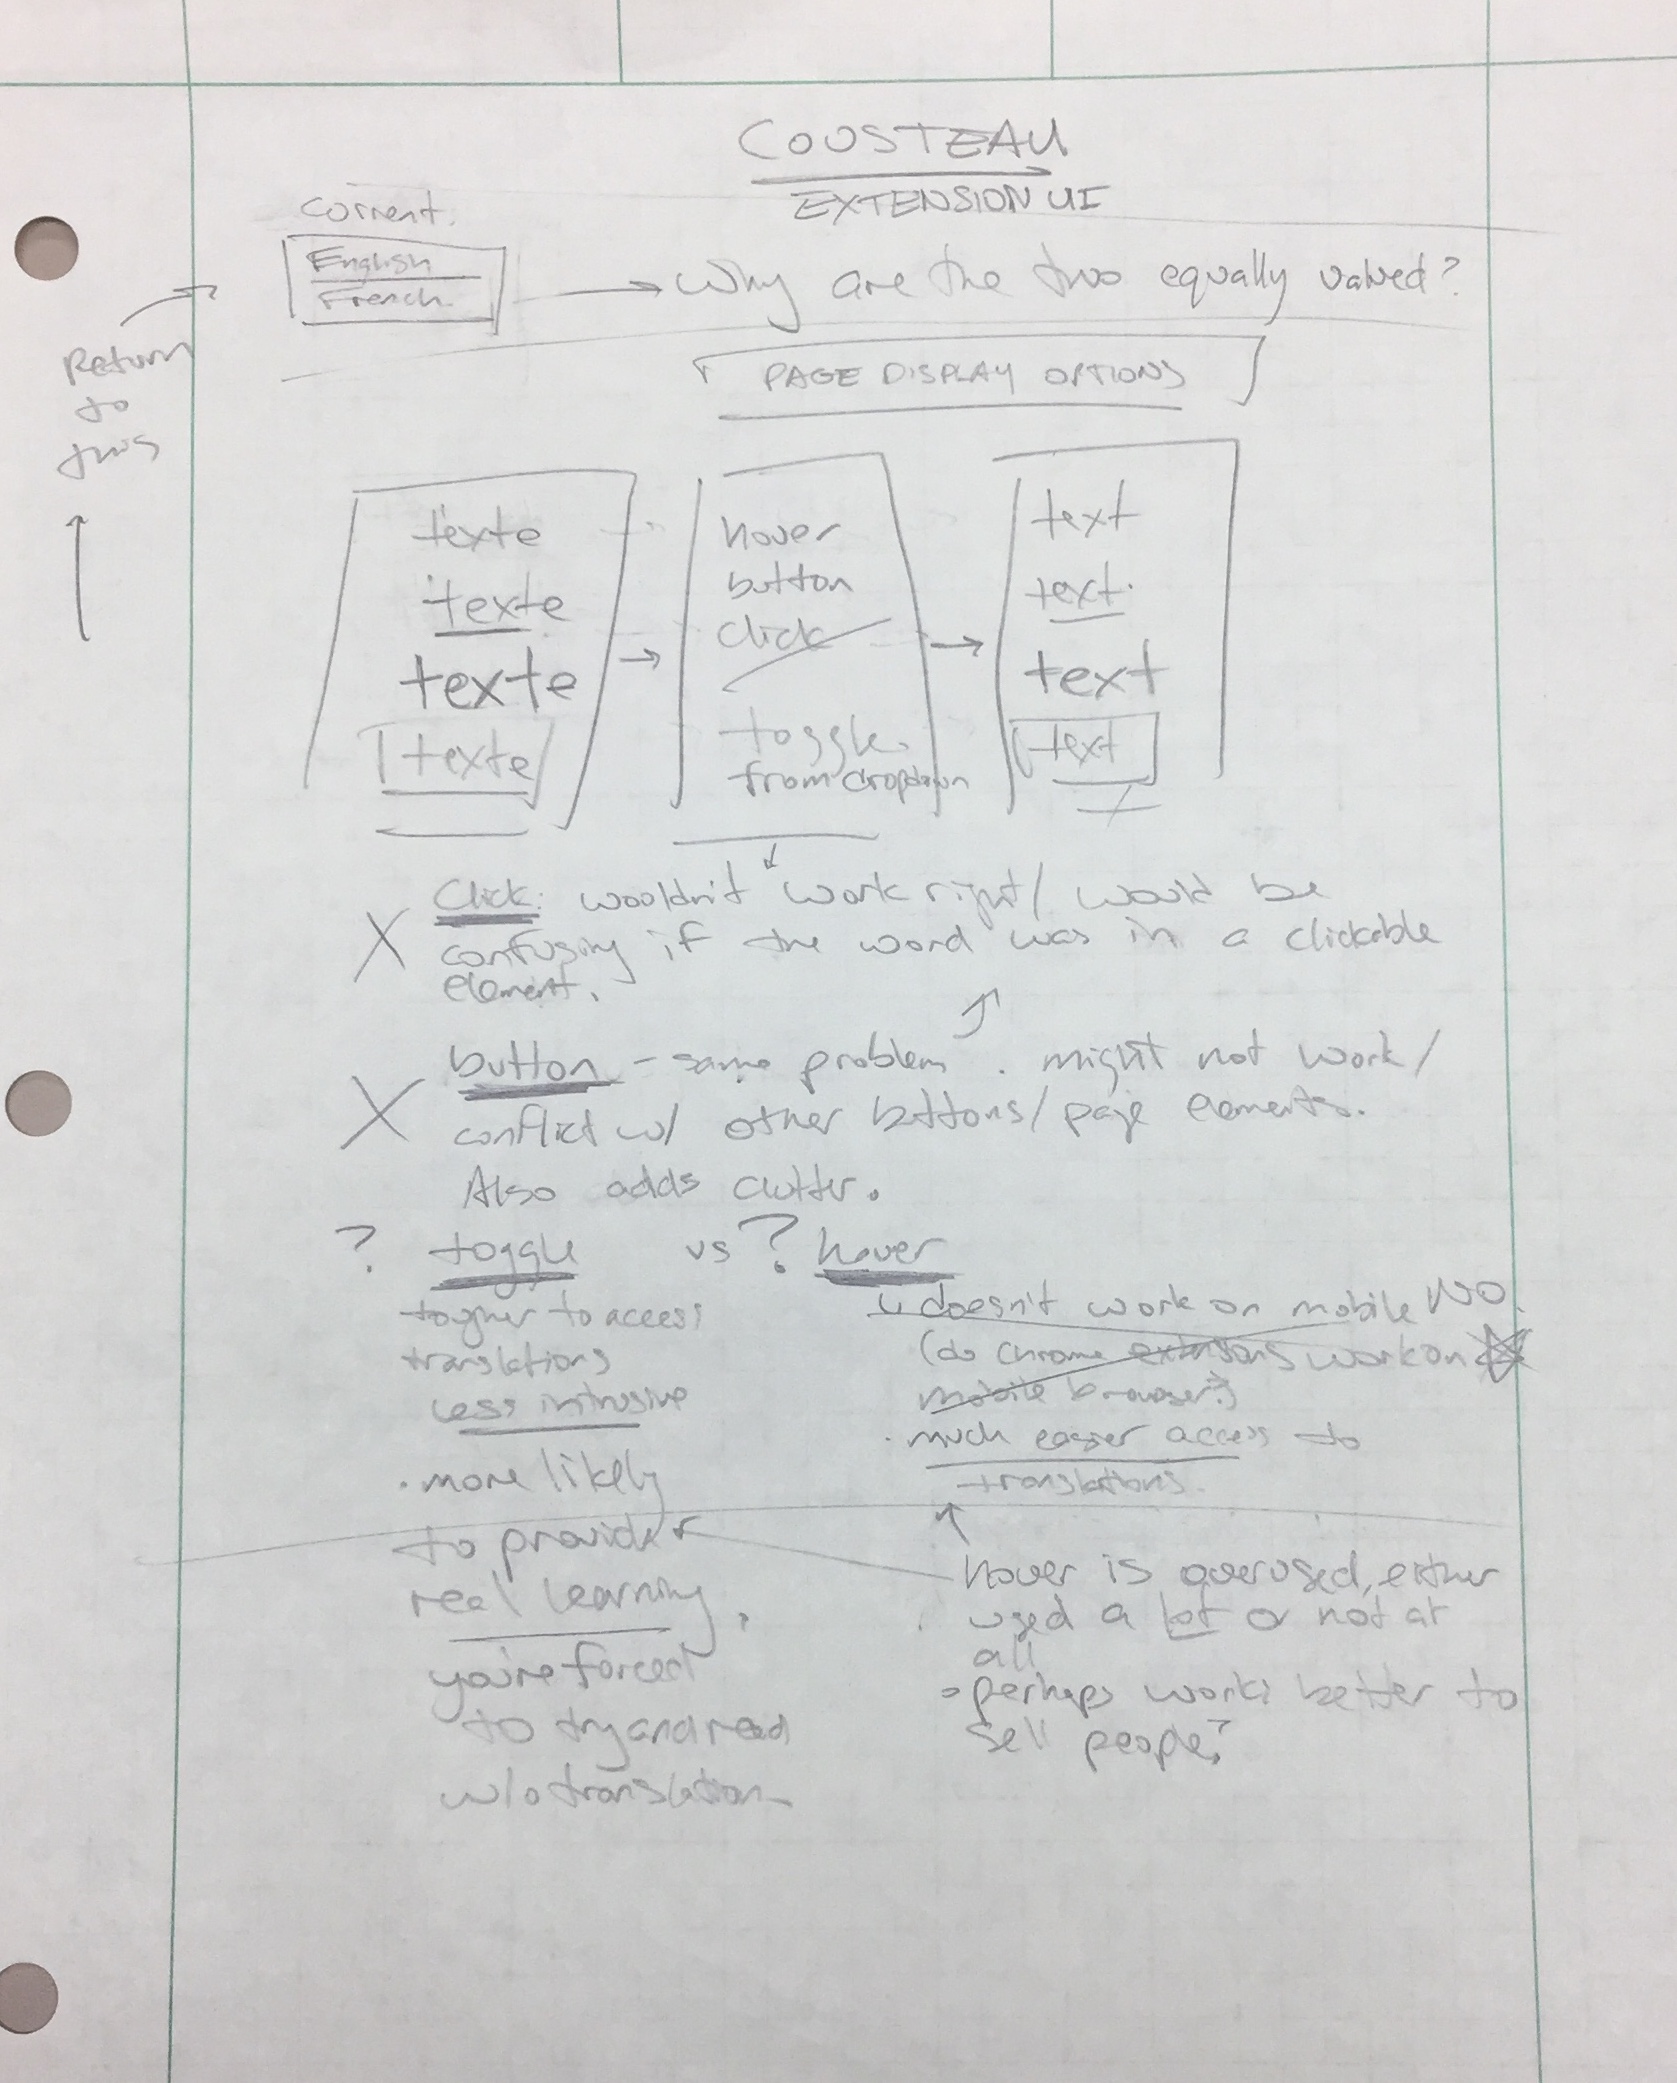 COUSTEAU
EXTENSION UI
Current.
English
French
Why are the two equally valued?
Return
to
this
PAGE DISPLAY OPTIONS
texte
texte
texte
texte
hover
button
click
toggle
from dropdown
text
text
text
text
Click: wouldn't work right/ would be
confusing if the word was in a clickable
element.
button - same problem. might not work/
conflict w/ other buttons/page elements.
Also adds clutter.
? toggle vs ? hover
tougher to access
translations
less intrusive
• more likely
to provide
real learning,
you're forced
to try and read
w/o translation
doesn't work on mobile NO.
(do chrome extensions work on
mobile browser?)
• much easier access to
translations.
hover is overused, either
used a lot or not at
all
• perhaps works better to
sell people?